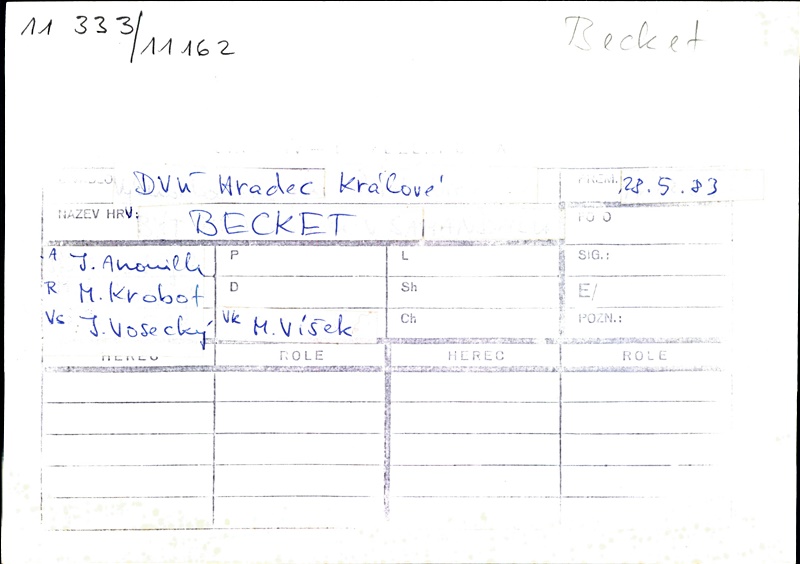 11 333/11162
Becket
DVÚ Hradec Králové
PREM.: 28.5.83
NÁZEV HRY: BECKET
FOTO
A J. Anouilh P L SIG.:
R M. Krobot D Sh E/
Vs J. Vosecký Vk M. Víšek Ch POZN.:
HEREC ROLE HEREC ROLE